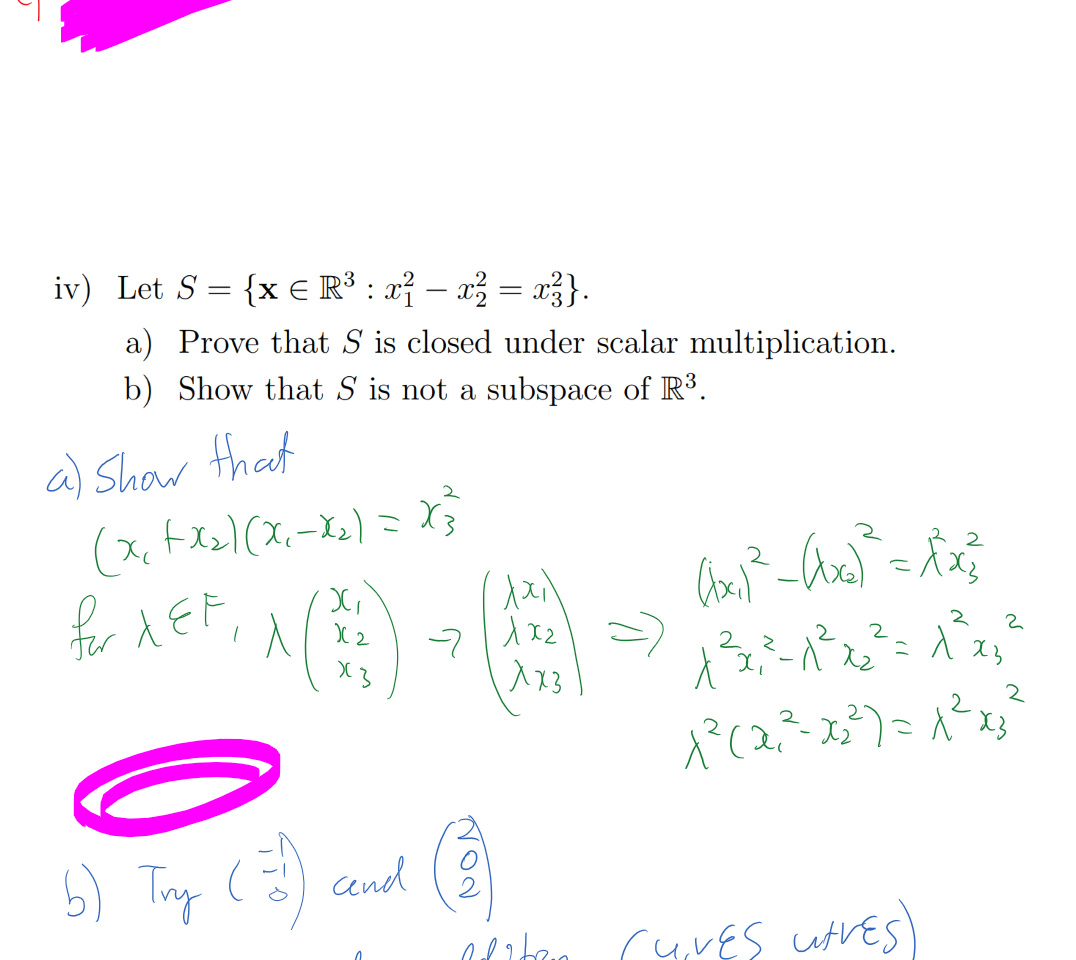 iv) Let S = {x ∈ ℝ³ : x₁² − x₂² = x₃²}.
a) Prove that S is closed under scalar multiplication.
b) Show that S is not a subspace of ℝ³.
a) Show that
(x₁+x₂)(x₁−x₂) = x₃²
for λ ∈ F, λ(x₁ x₂ x₃) → (λx₁ λx₂ λx₃) ⇒ (λx₁)² − (λx₂)² = λ²x₃²
λ²x₁² − λ²x₂² = λ²x₃²
λ²(x₁² − x₂²) = λ²x₃²
b) Try (−1 −1 0) and (2 0 2)
(u,v∈S u+v∈S)